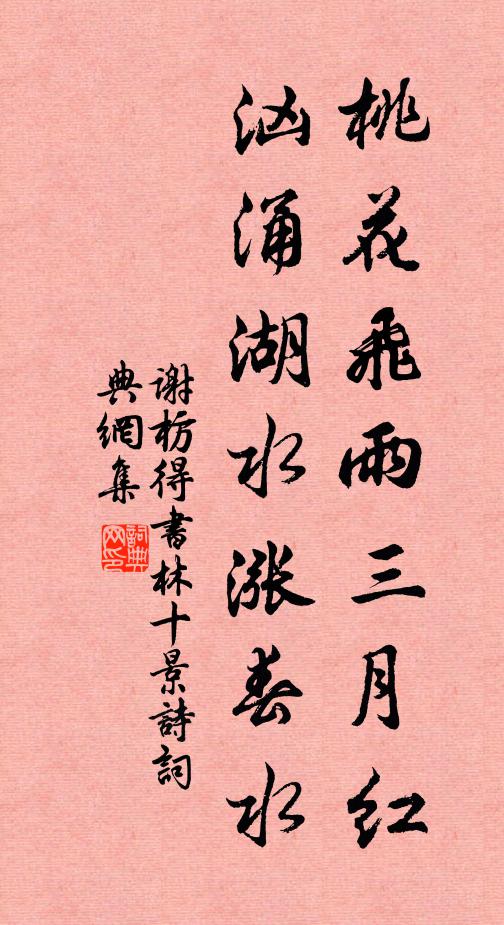 桃花飛雨三月红
汹涌湖水漲春水
谢枋得書林十景詩詞
典網集
詞典網印